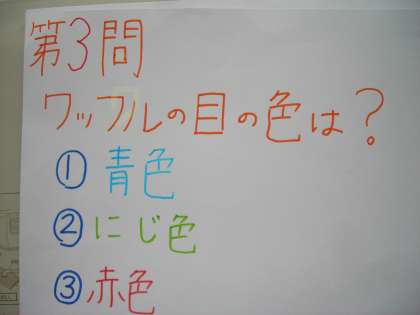 第3問
ワッフルの目の色は?
① 青色
② にじ色
③ 赤色